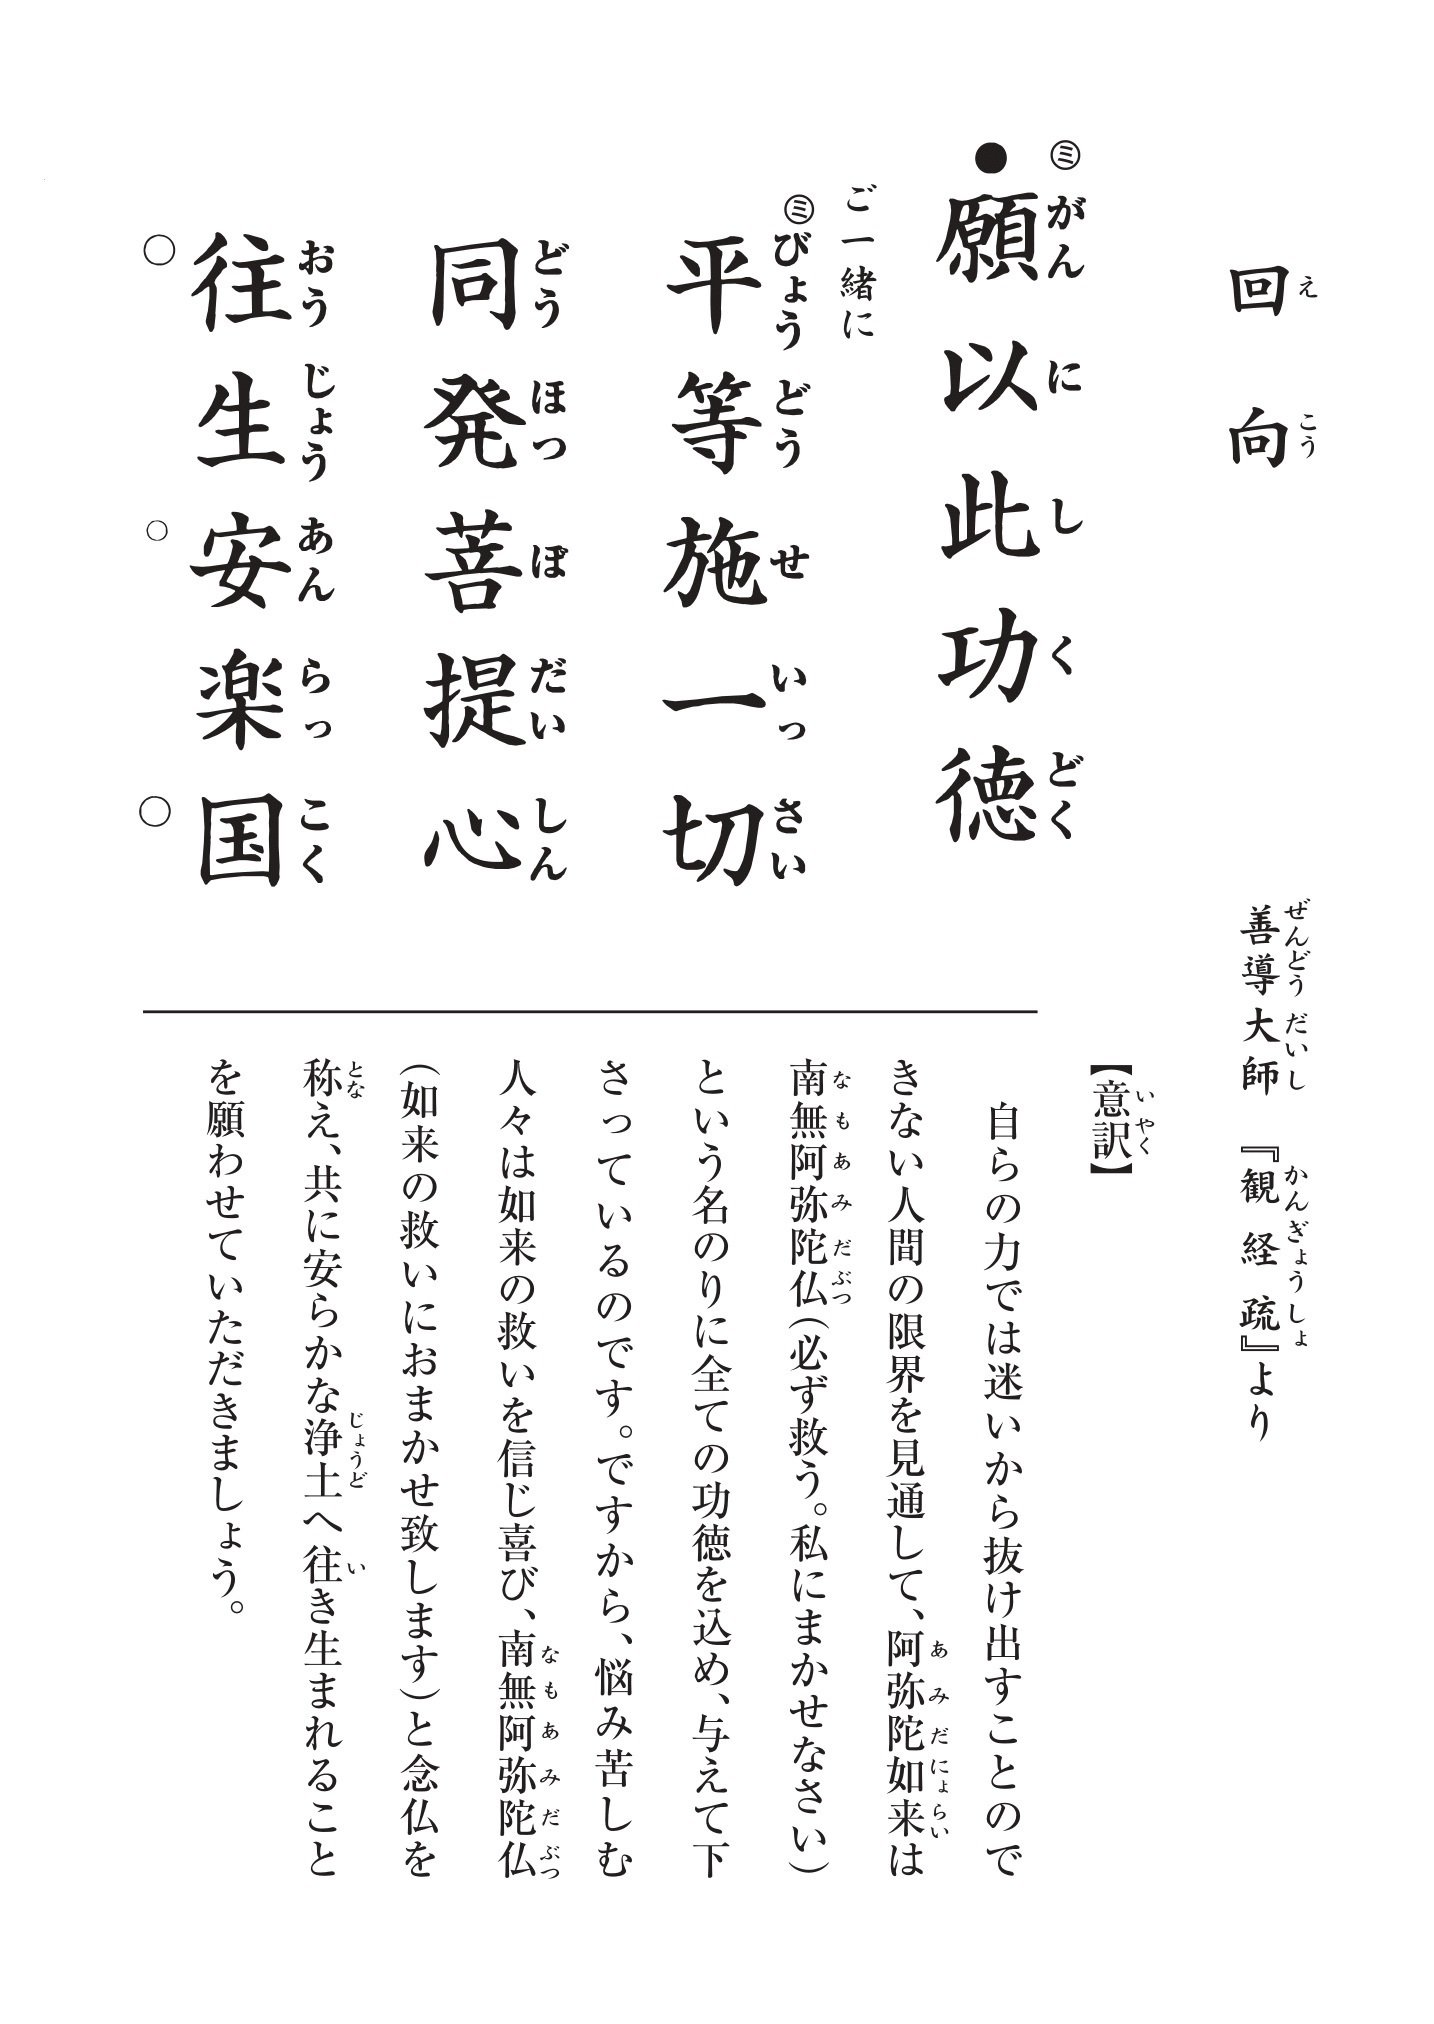 回向
えこう
善導大師『観経疏』より
ぜんどうだいし かんぎょうしょ
㋯
がんにしくどく
●願以此功徳
ご一緒に
㋯
びょうどうせいっさい
平等施一切
どうほつぼだいしん
同発菩提心
おうじょうあんらっこく
往生安楽国
○ ○ ○
【意訳】
いやく
自らの力では迷いから抜け出すことので
きない人間の限界を見通して、阿弥陀如来は
あみだにょらい
南無阿弥陀仏(必ず救う。私にまかせなさい)
なもあみだぶつ
という名のりに全ての功徳を込め、与えて下
さっているのです。ですから、悩み苦しむ
人々は如来の救いを信じ喜び、南無阿弥陀仏
なもあみだぶつ
(如来の救いにおまかせ致します)と念仏を
称え、共に安らかな浄土へ往き生まれること
とな じょうど い
を願わせていただきましょう。